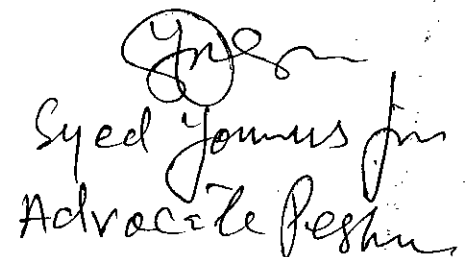 Syed Younus Jan
Advocate Pesha